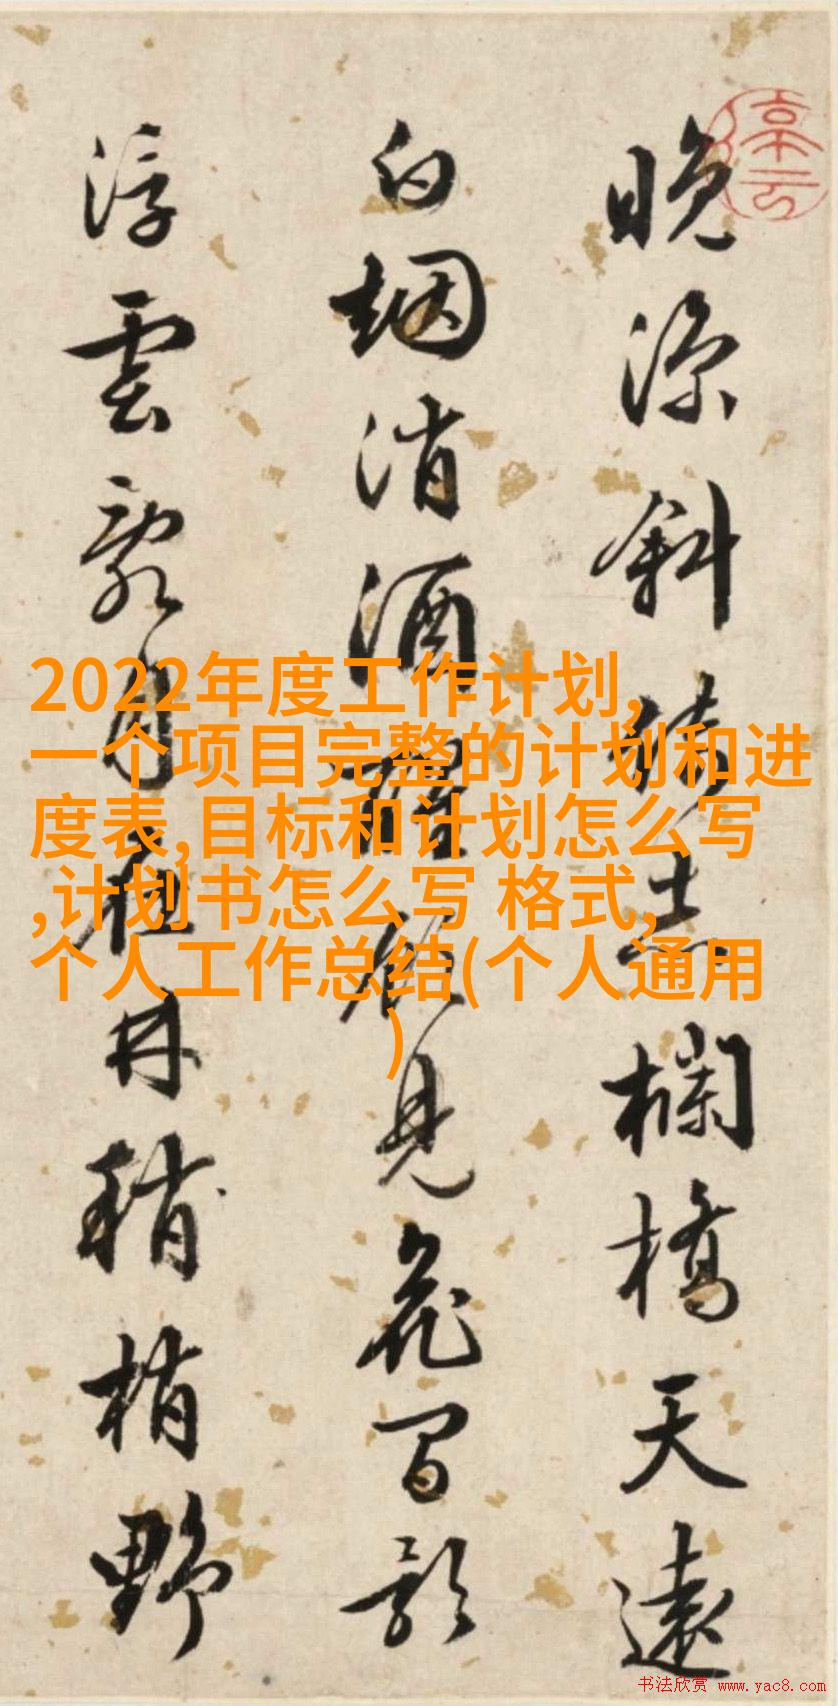 晚涼斜倚赤欄橋天遠
白烟消酒醒見花間影
浮雲月在林稍梢野
2022年度工作计划,
一个项目完整的计划和进
度表,目标和计划怎么写
,计划书怎么写 格式,
个人工作总结(个人通用
)
书法欣赏 www.yac8.com